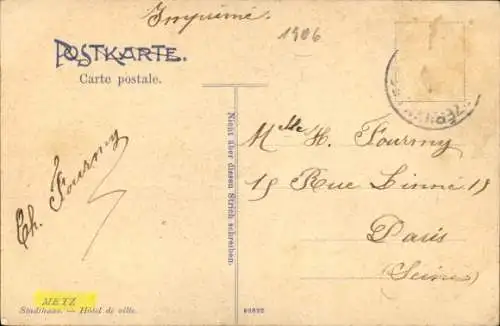 Imprimé
1906
POSTKARTE.
Carte postale.
Nicht über diesen Strich schreiben.
Ch. Fourny
Melle H. Fourmy
15 Rue Linné 15
Paris
(Seine)
METZ
Stadthaus. — Hôtel de ville.